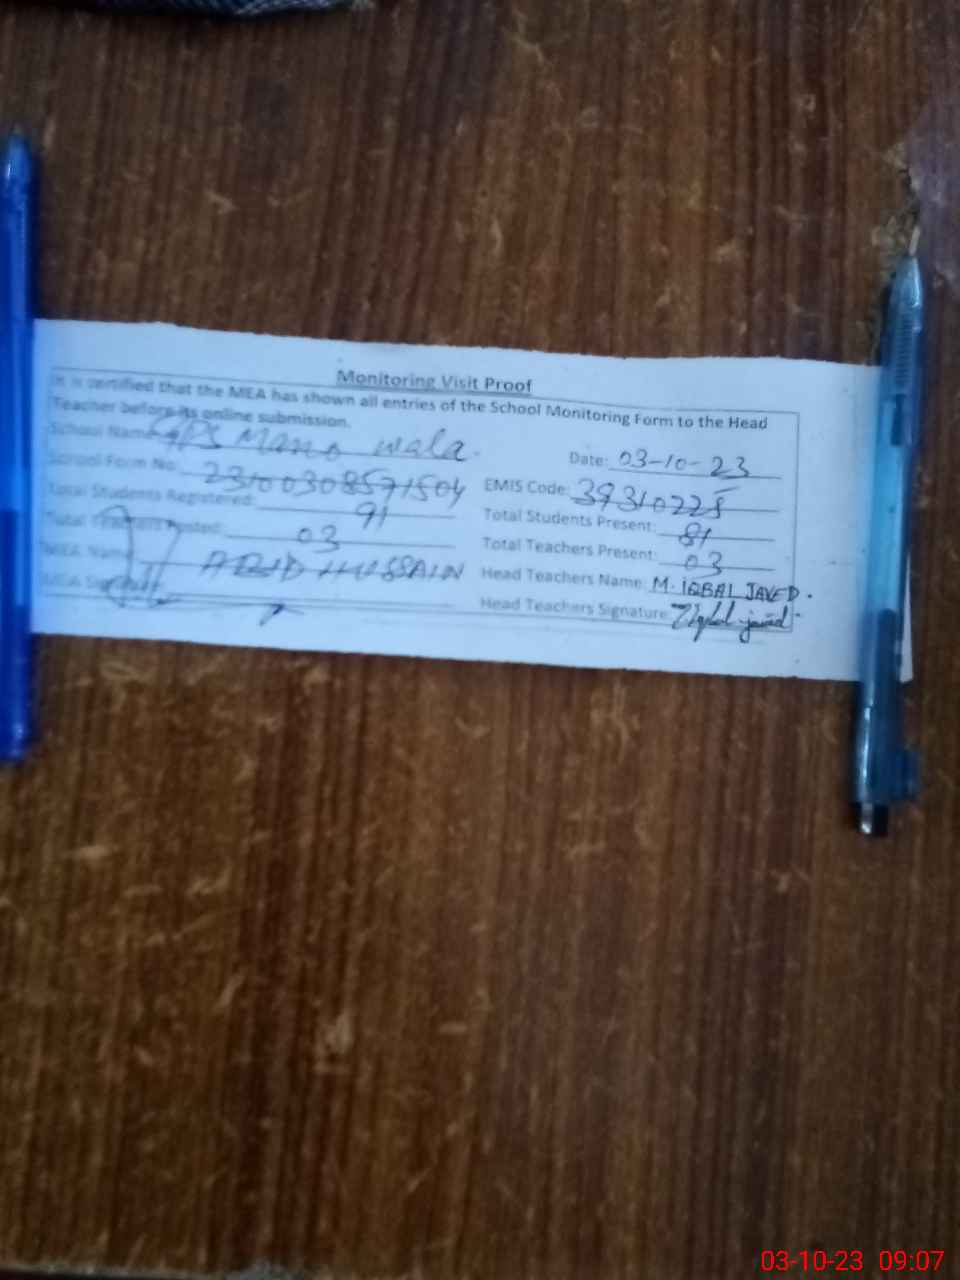 Monitoring Visit Proof
It is certified that the MEA has shown all entries of the School Monitoring Form to the Head
Teacher before its online submission.
School Name GPS Mano wala. Date: 03-10-23
School Form No: 23100308571504 EMIS Code: 39310225
Total Students Registered: 91 Total Students Present: 81
Total Teachers Posted: 03 Total Teachers Present: 03
MEA Name ABID HUSSAIN Head Teachers Name: M. IQBAL JAVED.
MEA Signature Head Teachers Signature
03-10-23 09:07